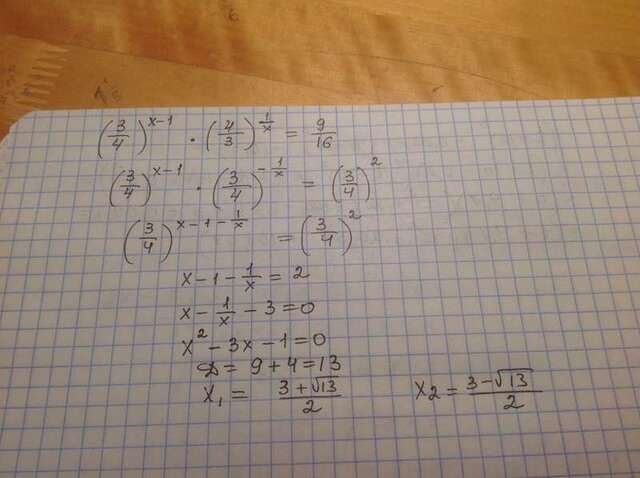 (3/4)^(x-1) · (4/3)^(1/x) = 9/16
(3/4)^(x-1) · (3/4)^(-1/x) = (3/4)^2
(3/4)^(x-1-1/x) = (3/4)^2
x-1-1/x = 2
x - 1/x - 3 = 0
x^2 - 3x - 1 = 0
D = 9 + 4 = 13
x₁ = (3+√13)/2 x₂ = (3-√13)/2